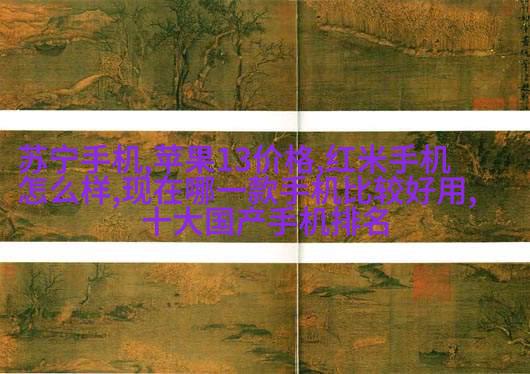 苏宁手机,苹果13价格,红米手机
怎么样,现在哪一款手机比较好用,
十大国产手机排名